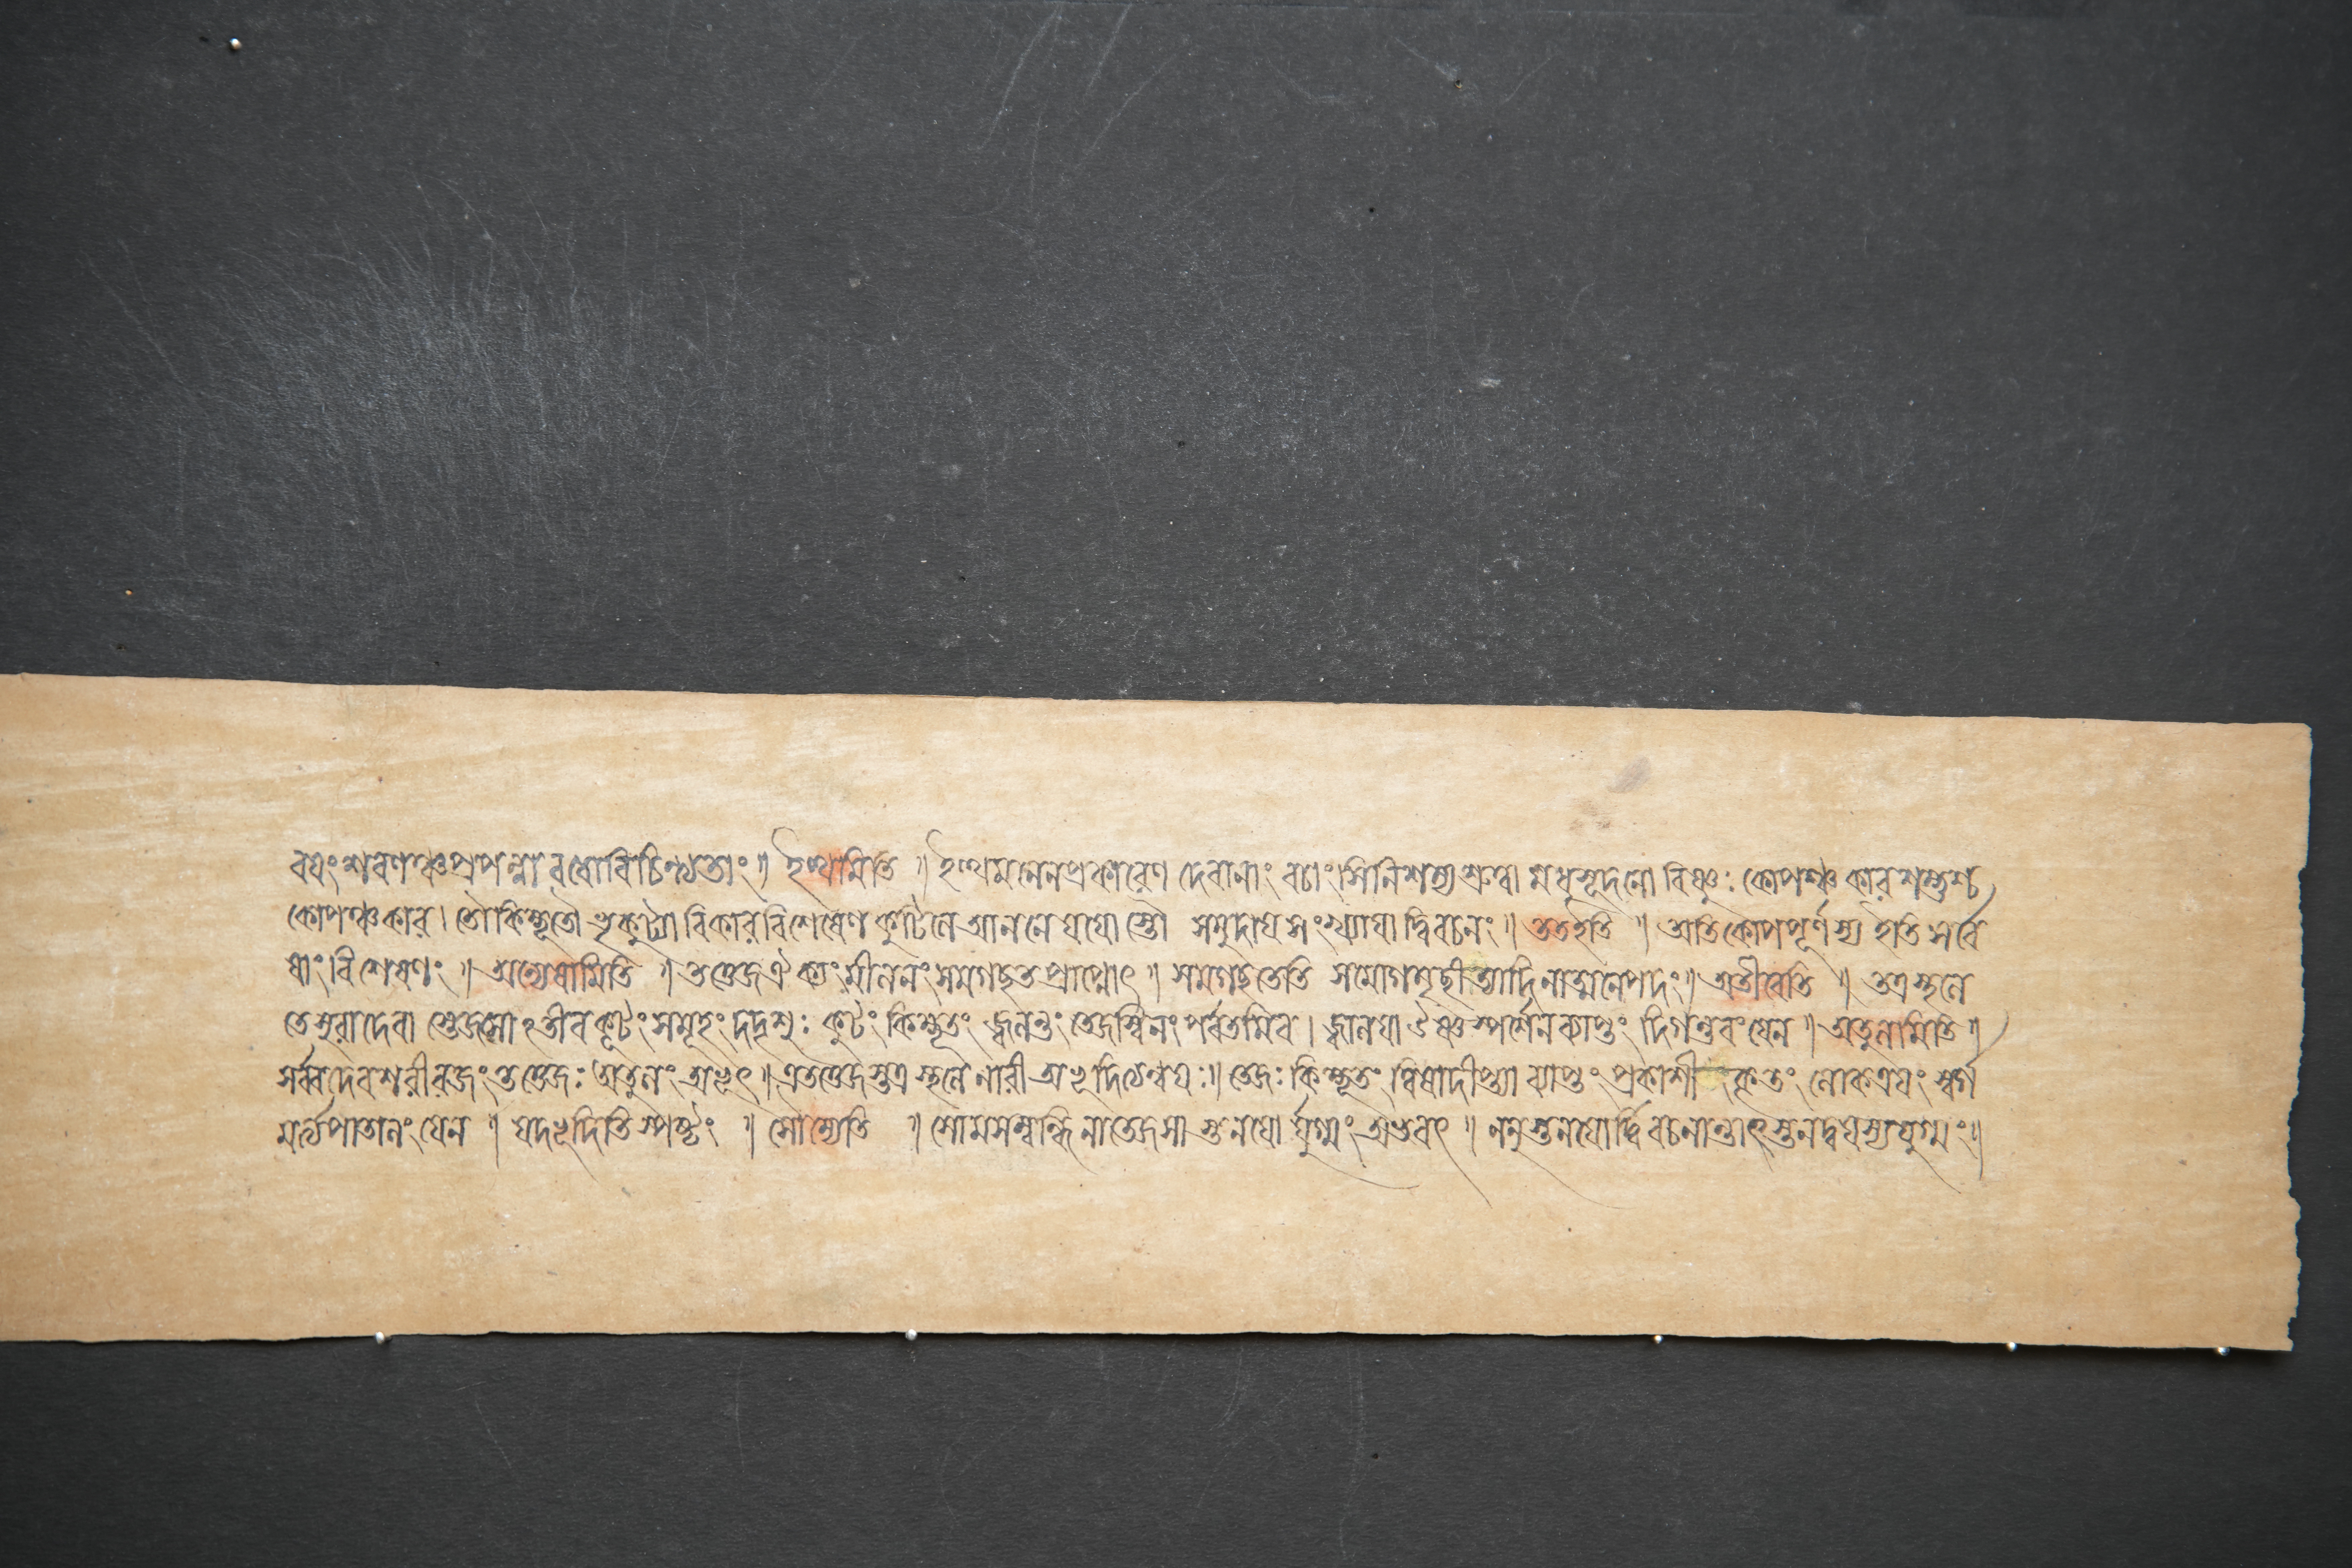 বয়ং শরণঞ্চ প্রপন্না বধোবিচিন্ত্যতাং ॥ ইত্থমিতি ॥ ইত্থমনেনপ্রকারেণ দেবানাং বচাংসি নিশম্য শ্রুত্বা মধুসূদনো বিষ্ণুঃ কোপঞ্চকার শম্ভুশ্চ
কোপঞ্চকার। তৌ কিম্ভূতৌ ভ্রূকুট্যা বিকারবিশেষেণ কুটিলে আননে যযোস্তৌ সমুদায়সংখ্যায়া দ্বিবচনং ॥ ততইতি ॥ অতিকোপপূর্ণস্য ইতি সর্বে
ষাং বিশেষণং ॥ অন্যেষামিতি ॥ তত্তেজঐক্যং মীলনং সমগছত প্রাপ্নোৎ ॥ সমগছতেতি সমোগমৃছীত্যাদিনাত্মনেপদং ॥ অতীবেতি ॥ তত্র স্থলে
তে সুরা দেবা স্তেজসোঽতীব কূটং সমূহং দদৃশুঃ কুটং কিম্ভূতং জ্বলন্তং তেজস্বিনং পর্বতমিব। জ্বালয়া ঔষ্ণস্পর্শেন ব্যাপ্তং দিগন্তরং যেন ॥ অতুলমিতি ॥
সর্ব্বদেবশরীরজং তত্তেজঃ অতুলং অভূৎ ॥ এতত্তেজস্তত্র স্থলে নারী অভূদিত্যেন্বয়ঃ ॥ তেজঃ কিম্ভূতং ত্বিষাদীপ্ত্যা ব্যাপ্তং প্রকাশীকৃতং লোকত্রয়ং স্বর্গ
মর্ত্ত্যপাতালং যেন ॥ যদভূদিতি স্পষ্টং ॥ সৌম্যেতি ॥ সোমসম্বন্ধিনা তেজসা স্তনয়োর্যুগ্মং অভবৎ ॥ ননু স্তনয়োর্দ্বিবচনান্তাৎ স্তনদ্বয়স্য যুগ্মং ॥